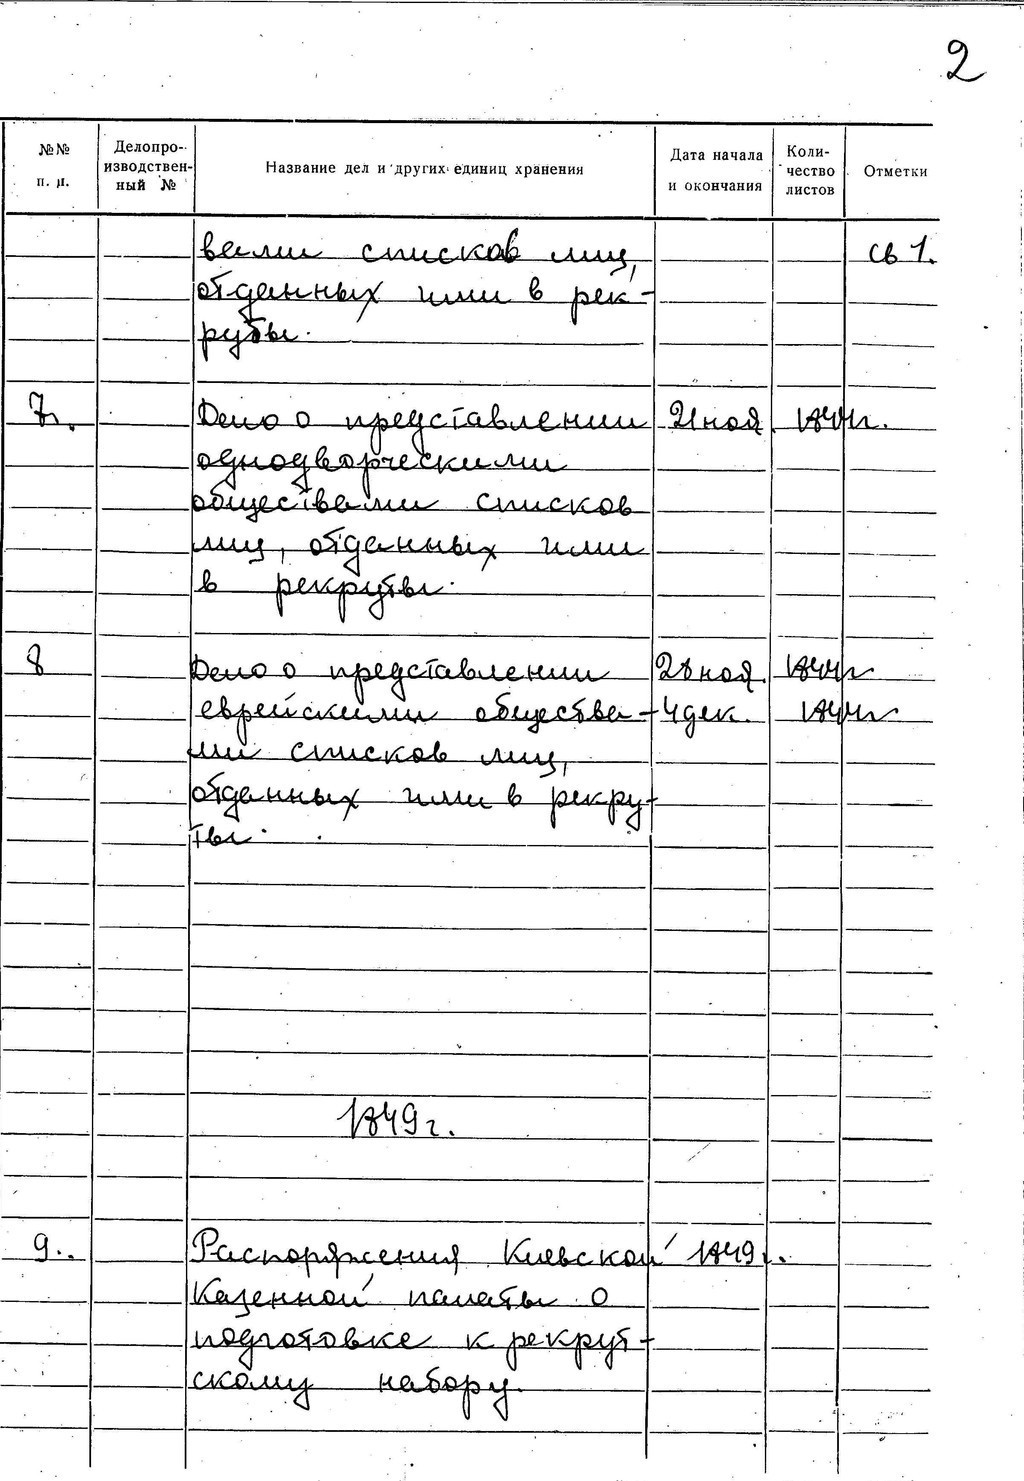 2
№№ п. п. Делопроизводственный № Название дел и других единиц хранения Дата начала и окончания Количество листов Отметки
вами списков лиц, св 1.
отданных ими в рек-
руты.
7. Дело о представлении 21 ноя. 1844г.
однодворческими
обществами списков
лиц, отданных ими
в рекруты.
8 Дело о представлении 28 ноя. 1844г
еврейскими общества- 4 дек. 1844г
ми списков лиц,
отданных ими в рекру-
ты.
1849г.
9. Распоряжения Киевской 1849г.
Казенной палаты о
подготовке к рекрут-
скому набору.